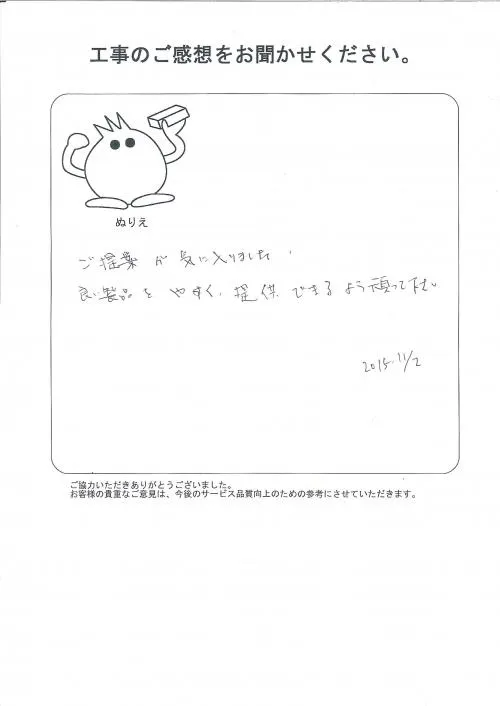 工事のご感想をお聞かせください。
ぬりえ
ご提案が気に入りました。
良い製品をやすく、提供できるよう頑って下さい
2015.11/2
ご協力いただきありがとうございました。
お客様の貴重なご意見は、今後のサービス品質向上のための参考にさせていただきます。